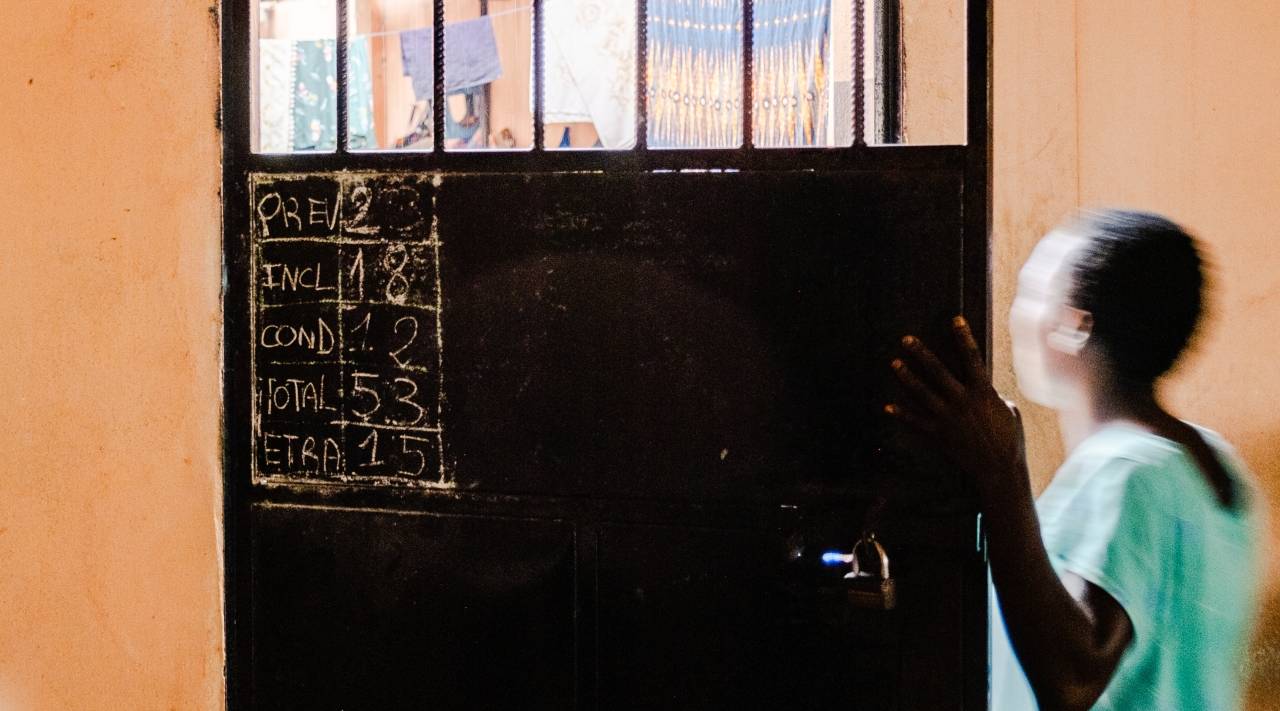 PREV 23
INCL 18
COND 12
TOTAL 53
ETRA 15